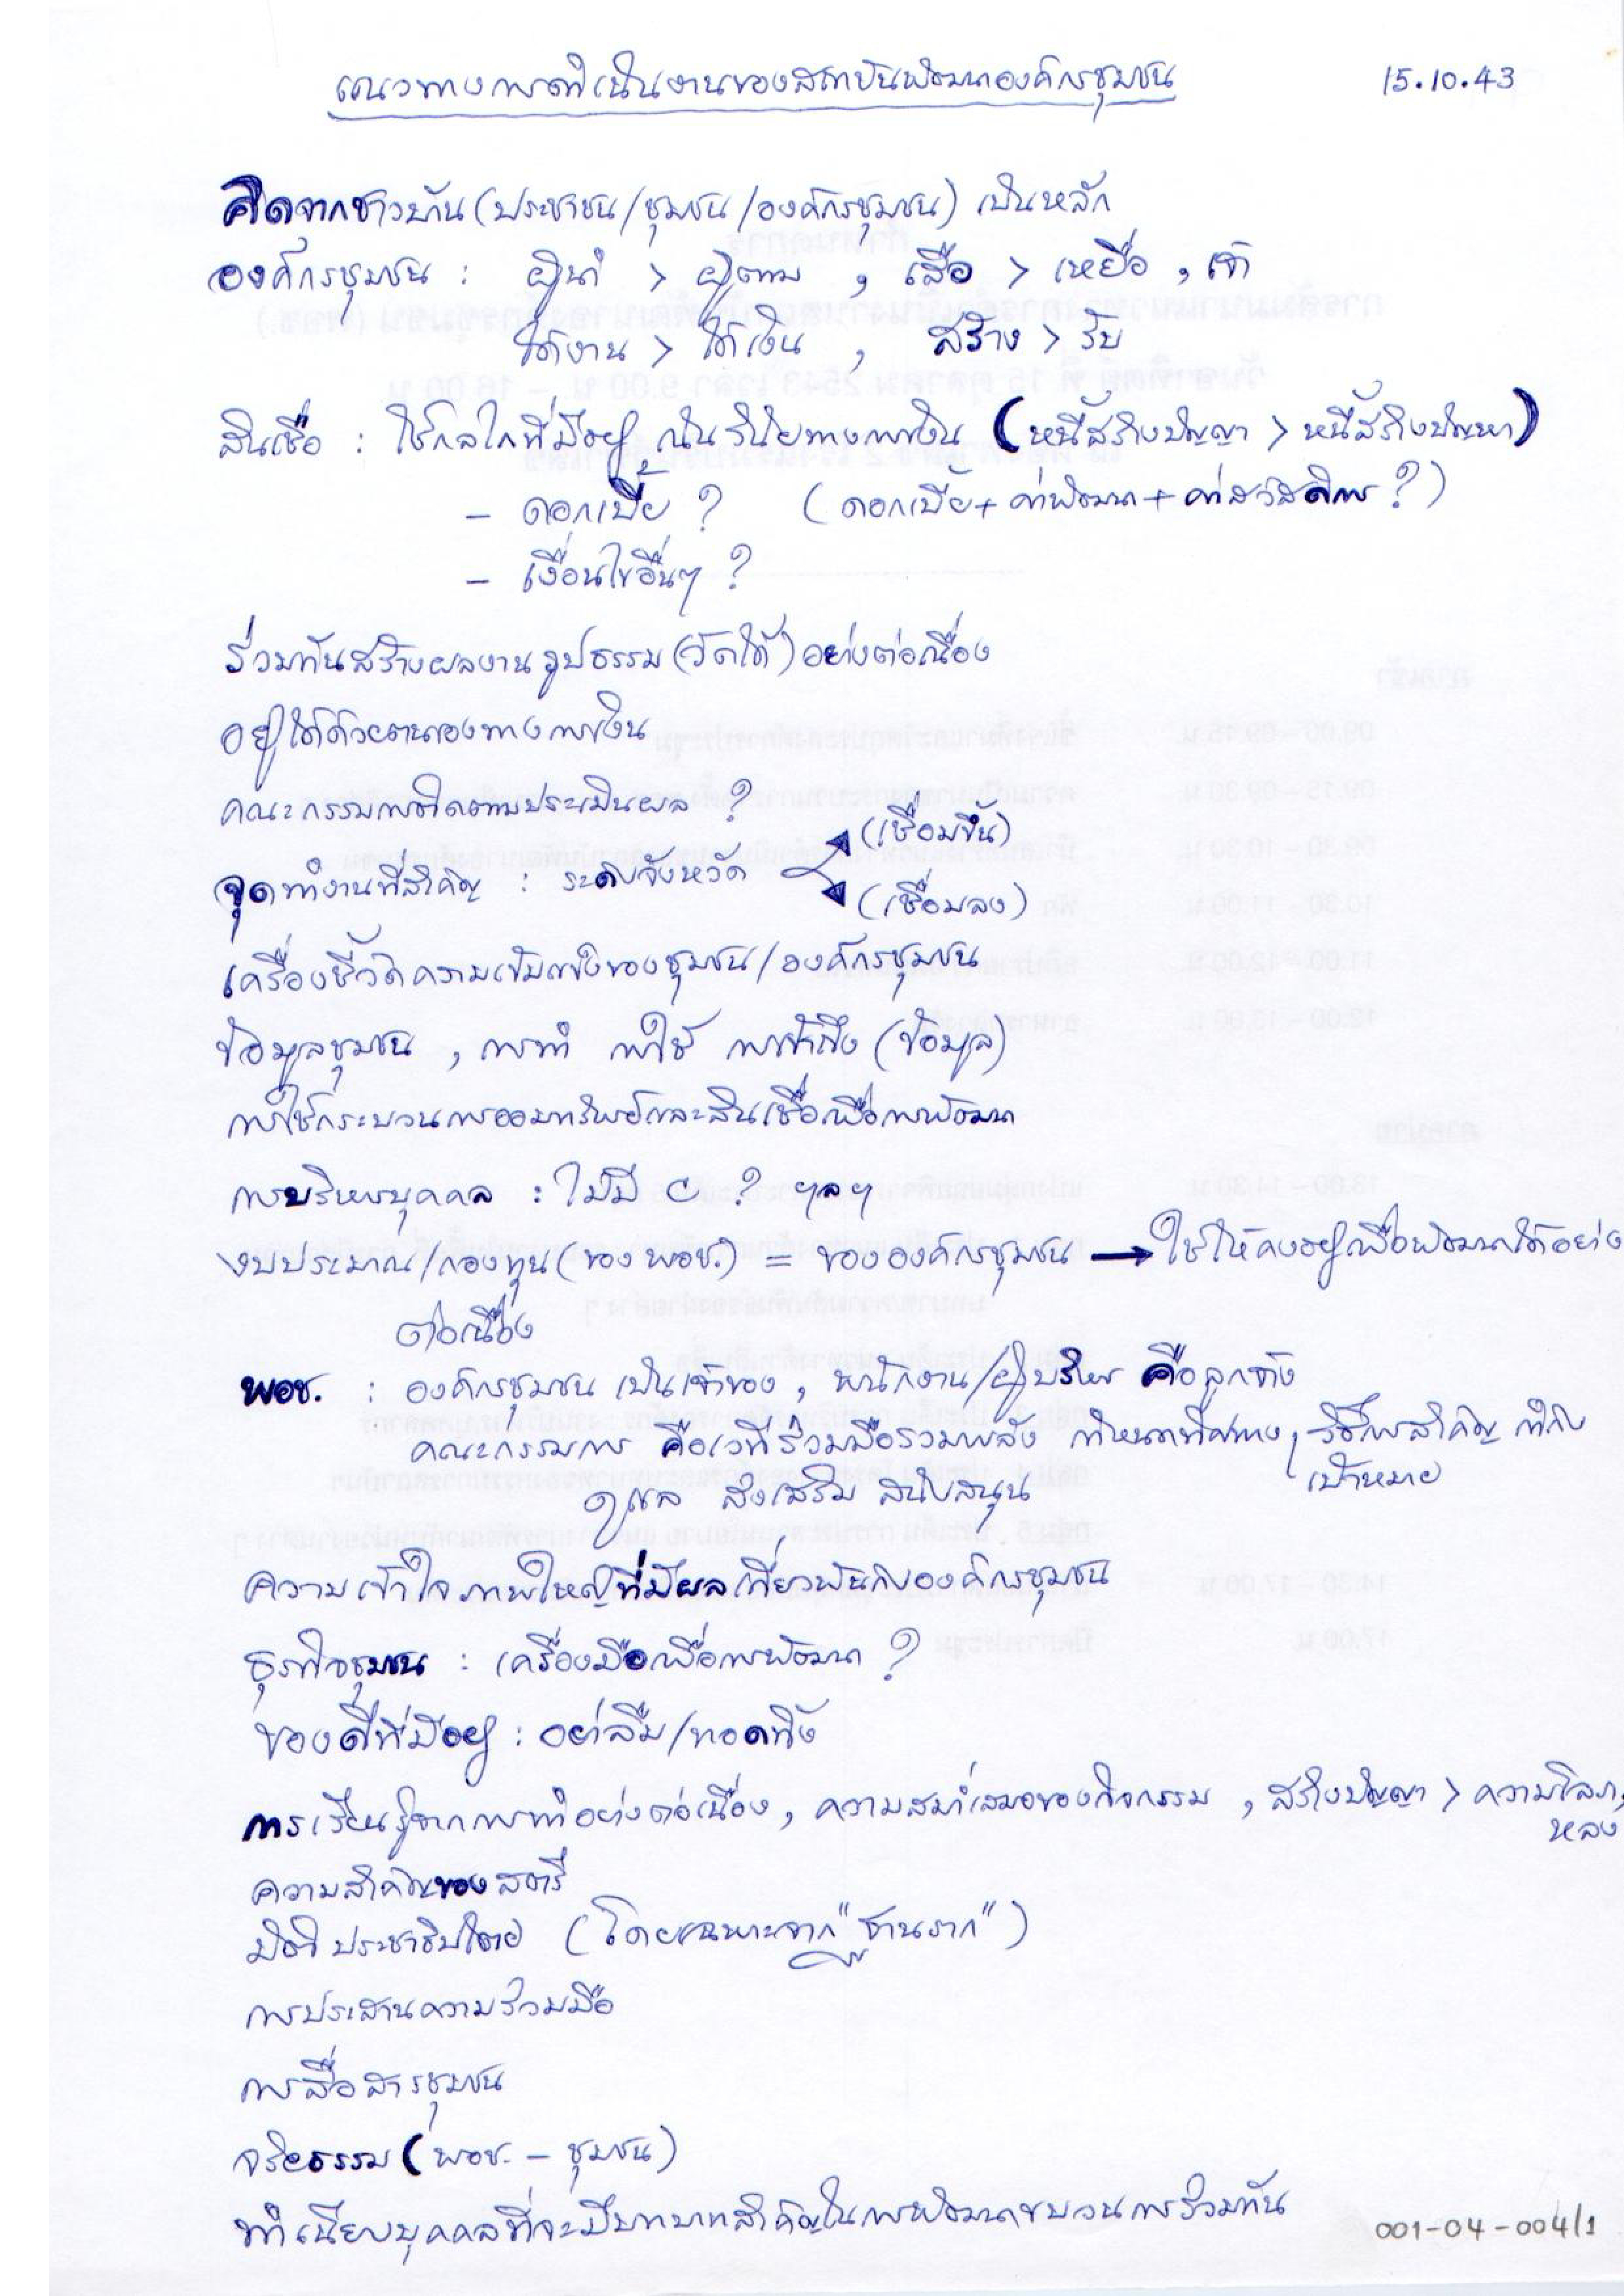 แนวทางการดำเนินงานของสถาบันพัฒนาองค์กรชุมชน 15.10.43
คิดจากชาวบ้าน (ประชาชน/ชุมชน/องค์กรชุมชน) เป็นหลัก
องค์กรชุมชน : ผู้นำ > ผู้ตาม , เสือ > เหยื่อ ,
ได้งาน > ได้เงิน , สร้าง > รับ
สินเชื่อ : ใช้กลไกที่มีอยู่ เน้นวินัยทางการเงิน (หนี้สร้างปัญญา > หนี้สร้างปัญหา)
- ดอกเบี้ย ? (ดอกเบี้ย + ค่าพัฒนา + ค่าสวัสดิการ ?)
- เงื่อนไขอื่นๆ ?
ร่วมกันสร้างผลงานรูปธรรม (วัดได้) อย่างต่อเนื่อง
อยู่ได้ด้วยตนเองทางการเงิน
คณะกรรมการติดตามประเมินผล ?
(เชื่อมขึ้น)
จุดทำงานที่สำคัญ : ระดับจังหวัด
(เชื่อมลง)
เครื่องชี้วัดความเข้มแข็งของชุมชน/องค์กรชุมชน
ข้อมูลชุมชน , การทำ การใช้ การเข้าถึง (ข้อมูล)
การใช้กระบวนการออมทรัพย์และสินเชื่อเพื่อการพัฒนา
การบริหารบุคคล : ไม่มี c ? ฯลฯ
งบประมาณ/กองทุน (ของ พอช.) = ขององค์กรชุมชน → ใช้ให้คงอยู่เพื่อพัฒนาได้อย่าง
ต่อเนื่อง
พอช. : องค์กรชุมชน เป็นเจ้าของ , พนักงาน/ผู้บริหาร คือลูกจ้าง
คณะกรรมการ คือเวทีร่วมมือรวมพลัง กำหนดทิศทาง, วิธีการสำคัญ กำกับ
เป้าหมาย
ดูแล ส่งเสริม สนับสนุน
ความเข้าใจภาพใหญ่ที่มีผลเกี่ยวพันกับองค์กรชุมชน
ธุรกิจชุมชน : เครื่องมือเพื่อการพัฒนา ?
ของดีที่มีอยู่ : อย่าลืม/ทอดทิ้ง
การเรียนรู้จากการทำอย่างต่อเนื่อง , ความสม่ำเสมอของกิจกรรม , สร้างปัญญา > ความโลภ,
หลง
ความสำคัญของสตรี
มิติประชาธิปไตย (โดยเฉพาะจาก "ฐานราก")
การประสานความร่วมมือ
การสื่อสารชุมชน
จริยธรรม (พอช. - ชุมชน)
ทำเนียบบุคคลที่จะมีบทบาทสำคัญในการพัฒนาขบวนการร่วมกัน
001-04-004/1